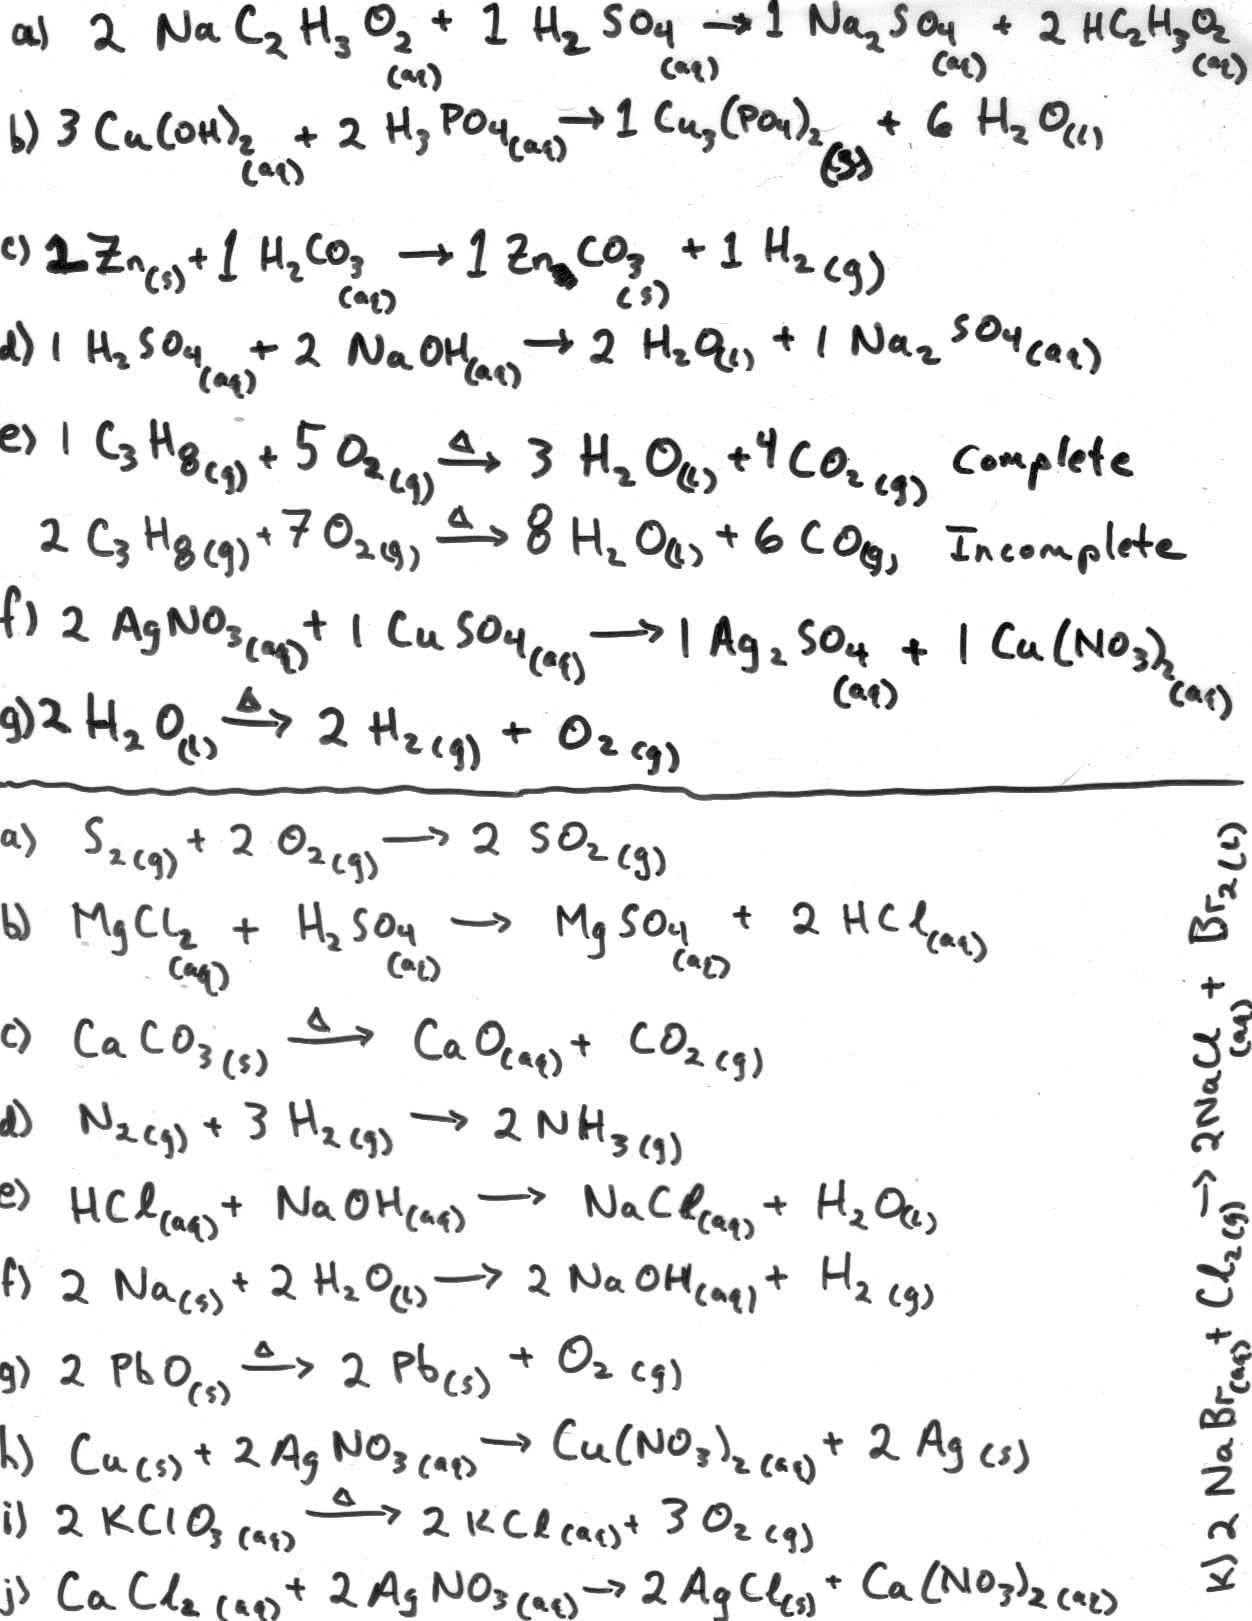 a) 2 NaC₂H₃O₂(aq) + 1 H₂SO₄(aq) → 1 Na₂SO₄(aq) + 2 HC₂H₃O₂(aq)
b) 3 Cu(OH)₂(aq) + 2 H₃PO₄(aq) → 1 Cu₃(PO₄)₂(s) + 6 H₂O(l)
c) 1 Zn(s) + 1 H₂CO₃(aq) → 1 ZnCO₃(s) + 1 H₂(g)
d) 1 H₂SO₄(aq) + 2 NaOH(aq) → 2 H₂O(l) + 1 Na₂SO₄(aq)
e) 1 C₃H₈(g) + 5 O₂(g) Δ→ 3 H₂O(l) + 4 CO₂(g) Complete
2 C₃H₈(g) + 7 O₂(g) Δ→ 8 H₂O(l) + 6 CO(g) Incomplete
f) 2 AgNO₃(aq) + 1 CuSO₄(aq) → 1 Ag₂SO₄(aq) + 1 Cu(NO₃)₂(aq)
g) 2 H₂O(l) Δ→ 2 H₂(g) + O₂(g)
a) S₂(g) + 2 O₂(g) → 2 SO₂(g)
b) MgCl₂(aq) + H₂SO₄(aq) → MgSO₄(aq) + 2 HCl(aq)
c) CaCO₃(s) Δ→ CaO(aq) + CO₂(g)
d) N₂(g) + 3 H₂(g) → 2 NH₃(g)
e) HCl(aq) + NaOH(aq) → NaCl(aq) + H₂O(l)
f) 2 Na(s) + 2 H₂O(l) → 2 NaOH(aq) + H₂(g)
g) 2 PbO(s) Δ→ 2 Pb(s) + O₂(g)
h) Cu(s) + 2 AgNO₃(aq) → Cu(NO₃)₂(aq) + 2 Ag(s)
i) 2 KClO₃(aq) Δ→ 2 KCl(aq) + 3 O₂(g)
j) CaCl₂(aq) + 2 AgNO₃(aq) → 2 AgCl(s) + Ca(NO₃)₂(aq)
K) 2 NaBr(aq) + Cl₂(g) → 2NaCl(aq) + Br₂(l)